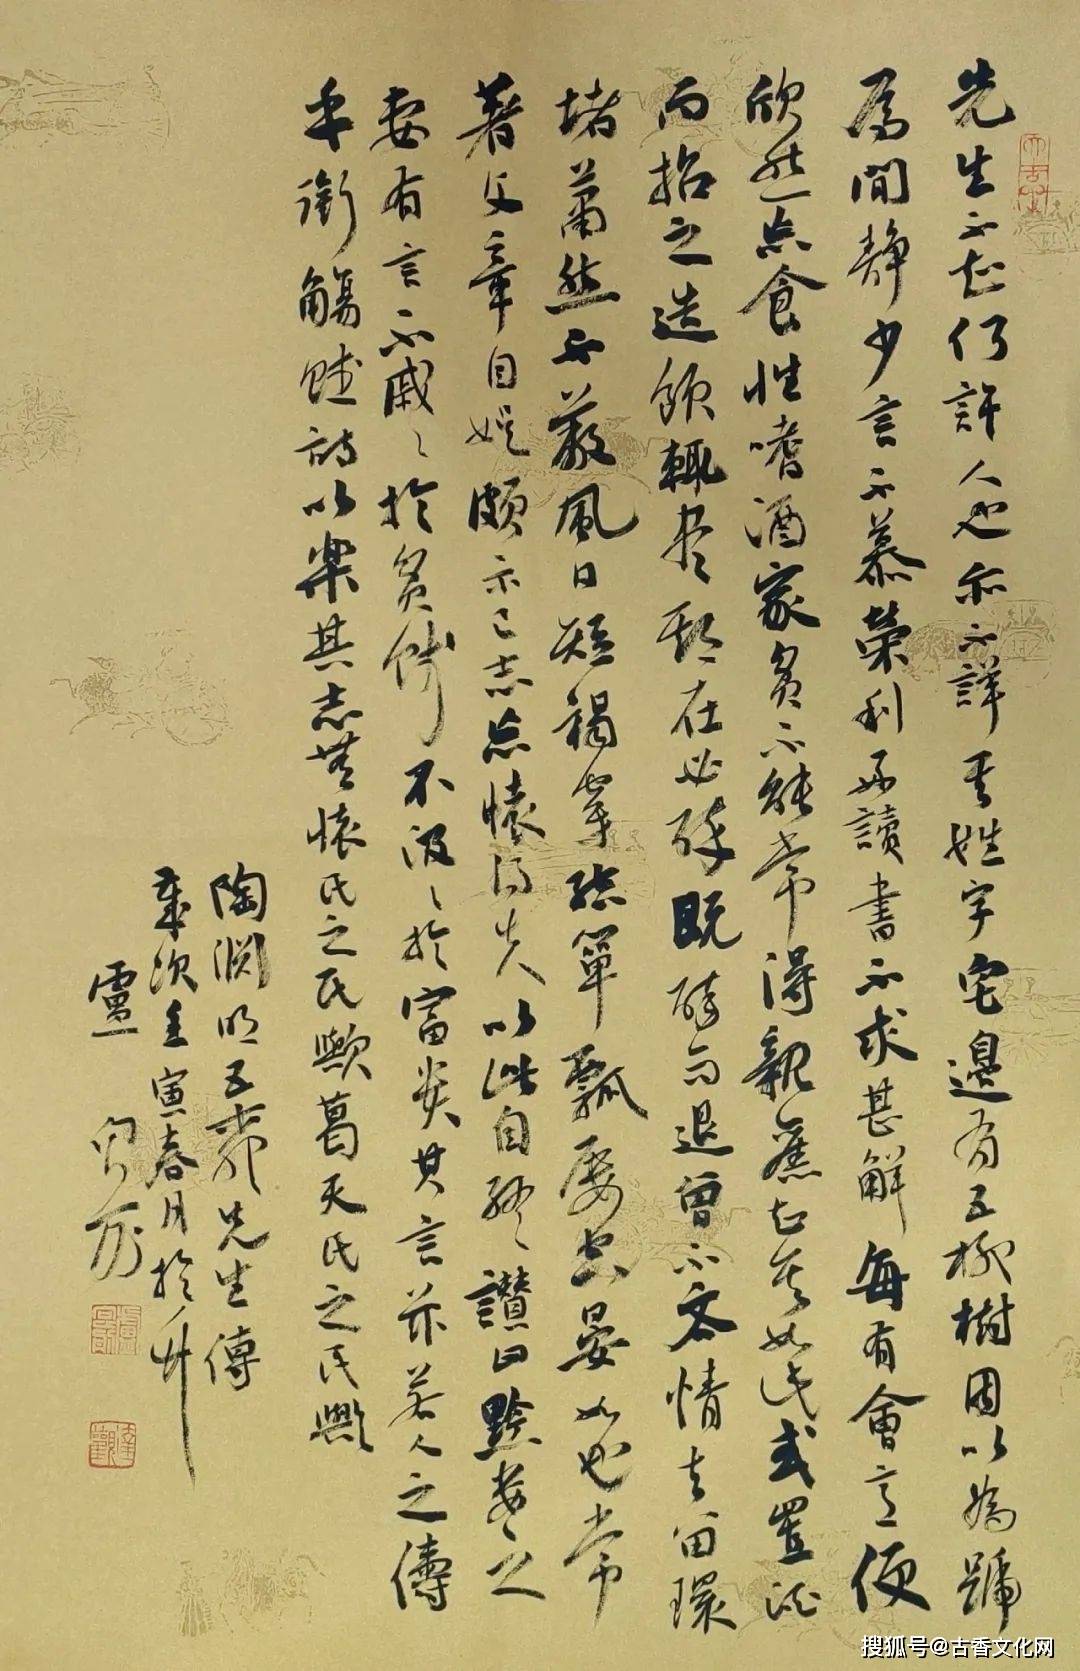 先生不知何許人也亦不詳其姓字宅邊有五柳樹因以為號
焉閒靜少言不慕榮利好讀書不求甚解每有會意便
欣然忘食性嗜酒家貧不能常得親舊知其如此或置酒
而招之造飲輒尽期在必醉既醉而退曾不吝情去留環
堵蕭然不蔽風日短褐穿結簞瓢屢空晏如也常
著文章自娛頗示己志忘懷得失以此自終讚曰黔婁之
妻有言不戚〻於貧賤不汲〻於富貴其言茲若人之儔
乎銜觴賦詩以樂其志無懷氏之民歟葛天氏之民歟
陶淵明五柳先生傳
歲次壬寅春月於
盧
搜狐号@古香文化网